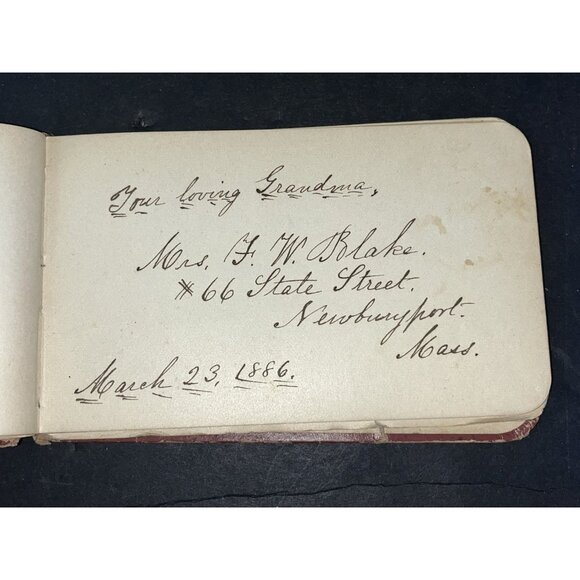 Your loving Grandma,
Mrs. F. W. Blake.
#66 State Street.
Newburyport.
Mass.
March 23, 1886.